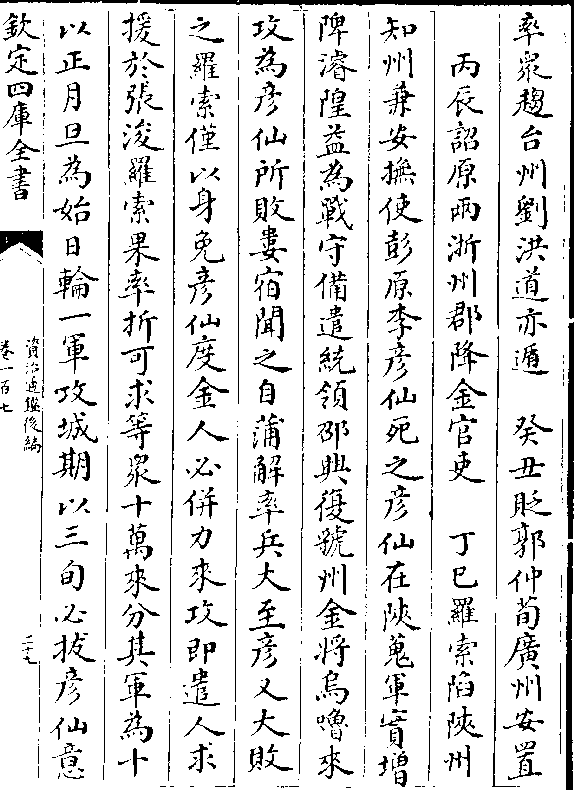 率衆趨台州劉洪道亦遁　癸丑貶郭仲荀廣州安置
丙辰詔原兩浙州郡降金官吏　丁巳羅索陷陝州
知州兼安撫使彭原李彦仙死之彦仙在陝蒐軍實増
陴濬隍益為戰守備遣統領邵興復號州金將烏嚕來
攻為彦仙所敗婁宿聞之自蒲解率兵大至彦又大敗
之羅索僅以身免彦仙度金人必併力來攻即遣人求
援於張浚羅索果率折可求等衆十萬來分其軍為十
以正月旦為始日輪一軍攻城期以三旬必拔彦仙意
欽定四庫全書
資治通鑑後編
卷一百七
二十七